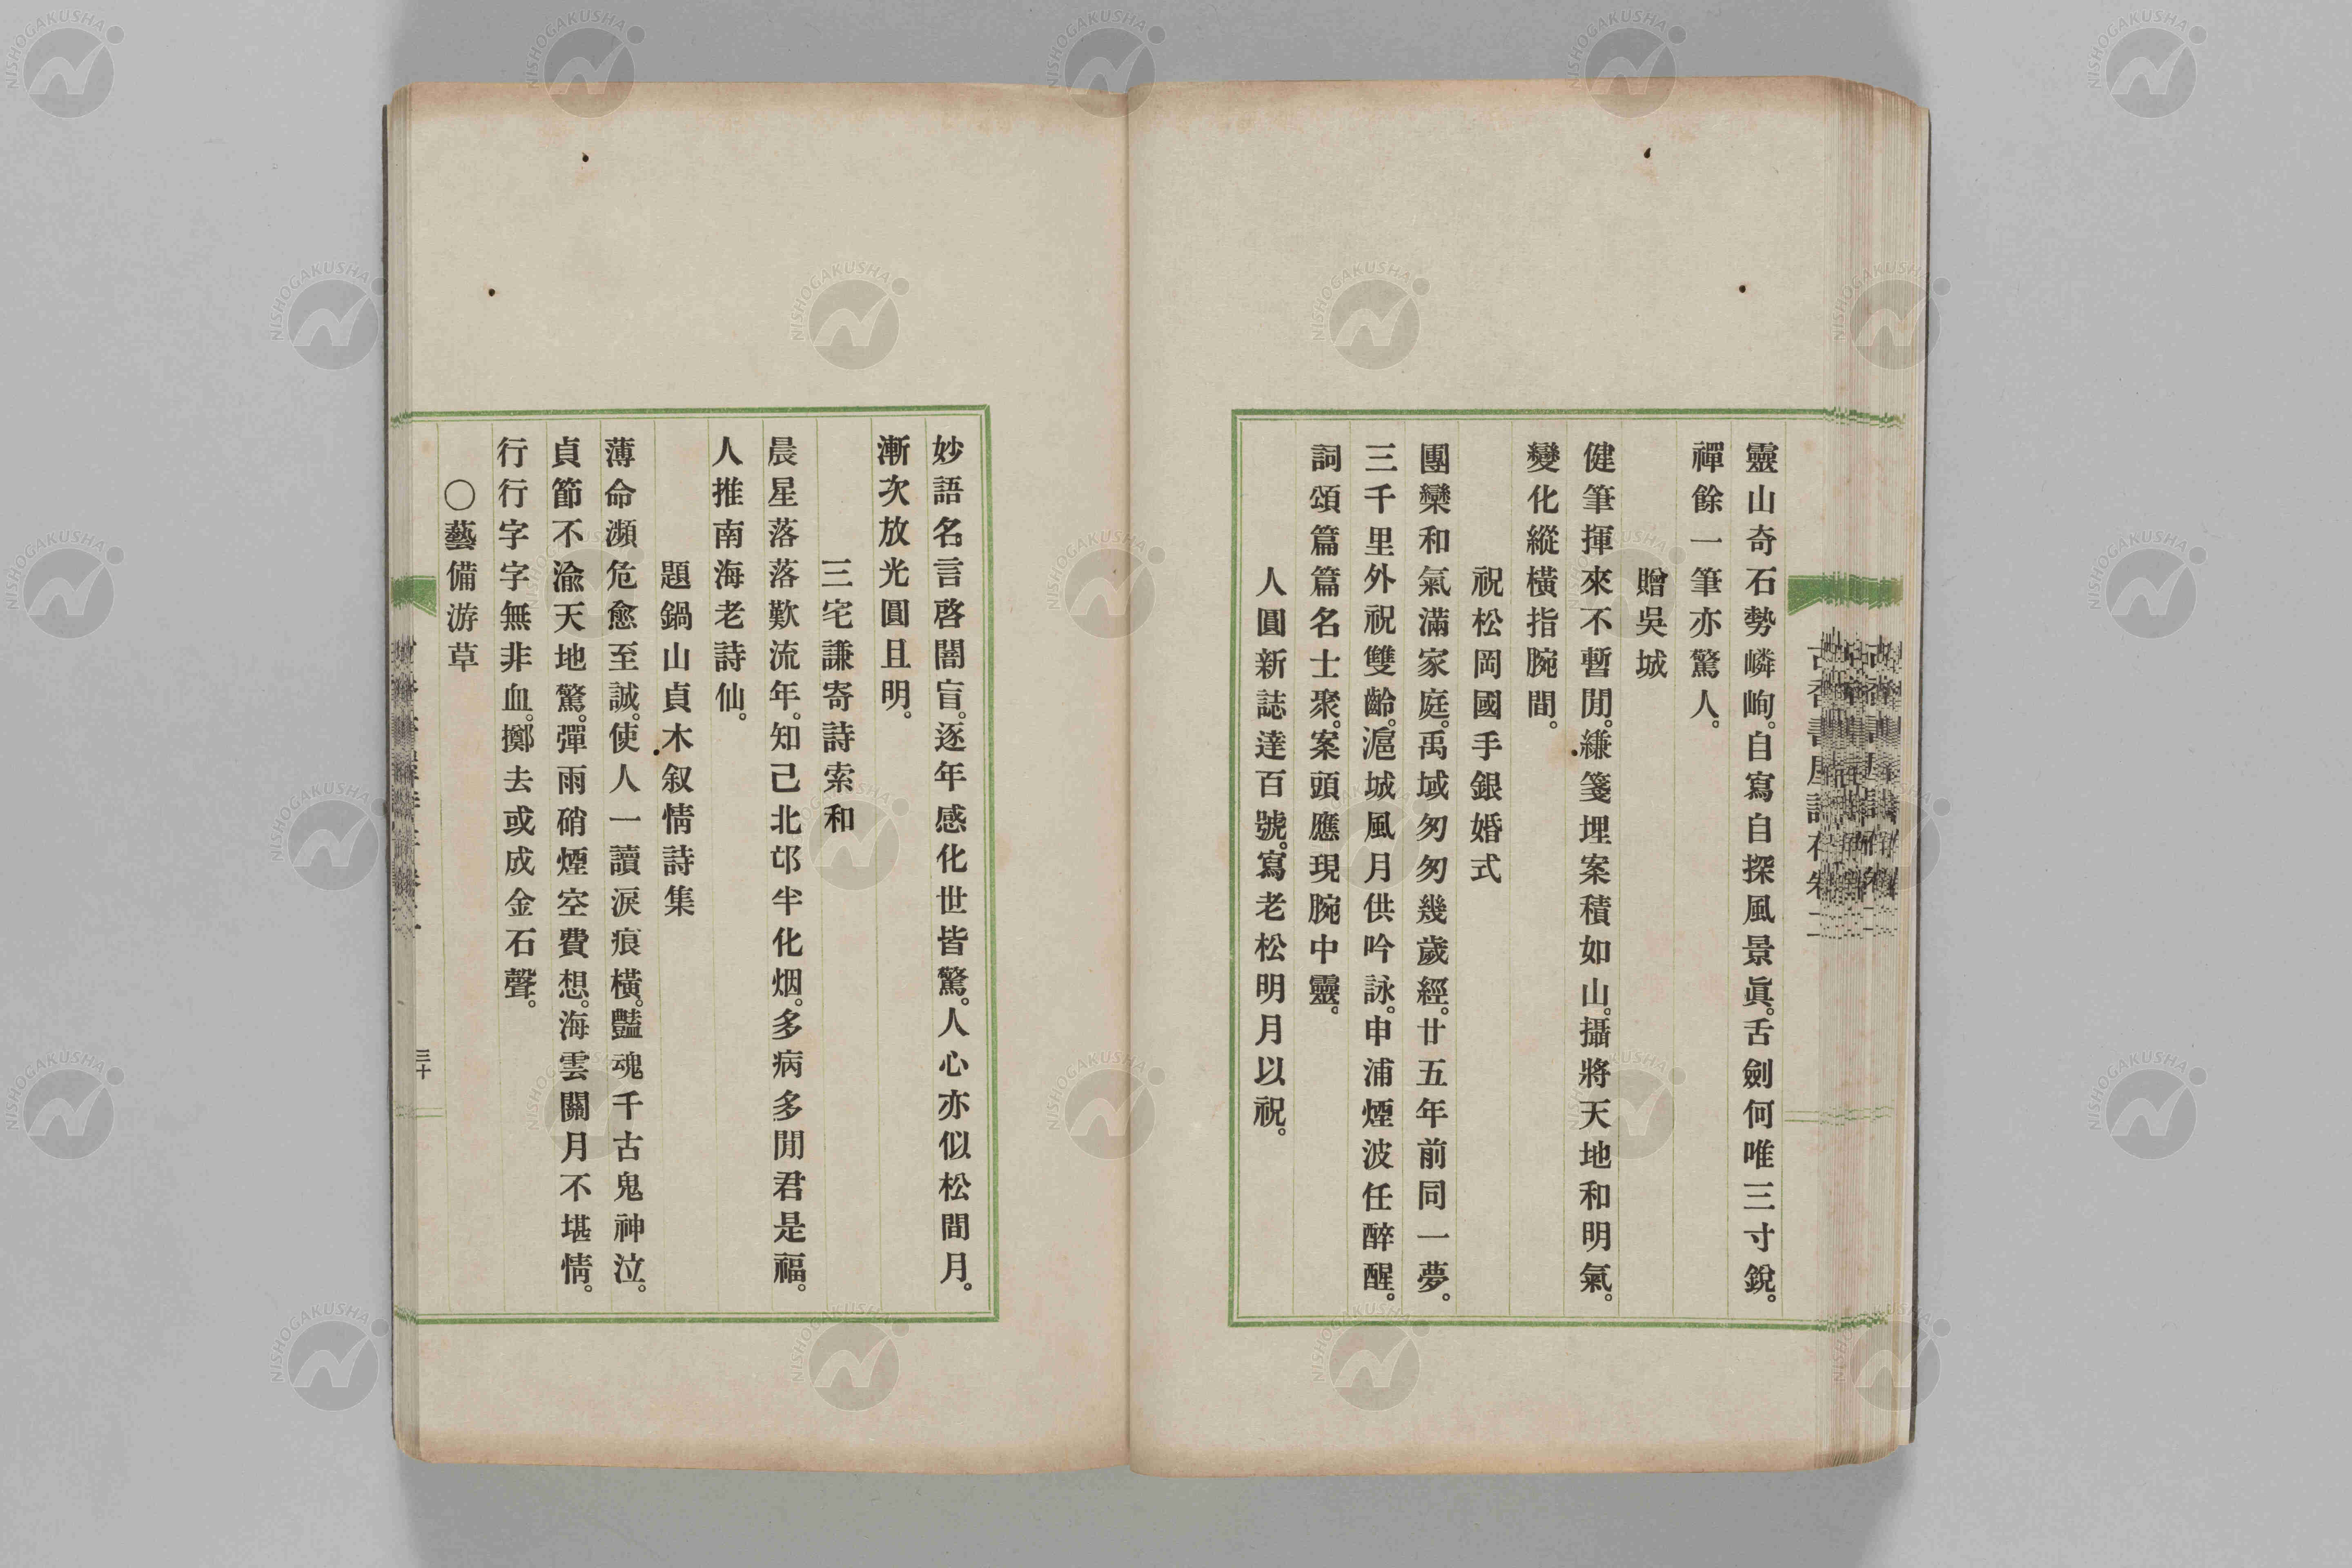 靈山奇石勢嶙峋。自寫自探風景眞。舌劍何唯三寸銳。
禪餘一筆亦驚人。
贈吳城
健筆揮來不暫閒。縑箋埋案積如山。攝將天地和明氣。
變化縱橫指腕間。
祝松岡國手銀婚式
團欒和氣滿家庭。禹域匆匆幾歲經。廿五年前同一夢。
三千里外祝雙齡。滬城風月供吟詠。申浦煙波任醉醒。
詞頌篇篇名士聚。案頭應現腕中靈。
人圓新誌達百號。寫老松明月以祝。
妙語名言啓闇盲。逐年感化世皆驚。人心亦似松間月。
漸次放光圓且明。
三宅謙寄詩索和
晨星落落歎流年。知己北邙半化烟。多病多閒君是福。
人推南海老詩仙。
題鍋山貞木叙情詩集
薄命瀕危愈至誠。使人一讀淚痕橫。豔魂千古鬼神泣。
貞節不渝天地驚。彈雨硝煙空費想。海雲關月不堪情。
行行字字無非血。擲去或成金石聲。
○藝備游草
三十
NISHOGAKUSHA